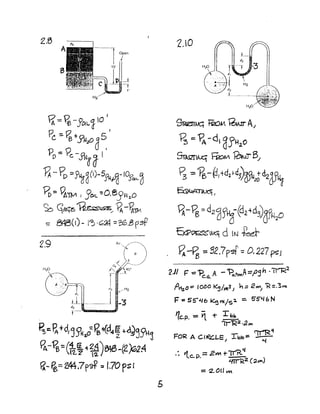 2.8
A
B
C
D
Open
P_A = P_B - ρ_OIL g 10'
P_C = P_B + ρ_H2O g 5'
P_D = P_C - ρ_Hg g 1'
P_A - P_D = ρ_Hg g(1) - 5ρ_H2O g - 10ρ_OIL g
P_D = P_ATM, ρ_OIL = 0.8 ρ_H2O
So GAGE PRESSURE, P_A - P_ATM
= 848(1) - 13 · 62.4 = 36.8 psf
2.9
H2O
3
P_3 = P_A + d_1 g ρ_H2O = P_B +
P_A - P_B = 848 - (2)62.4
P_A - P_B = 244.7 psf = 1.70 psi
2.10
H2O
3
Hg
H2O
STARTING FROM POINT A,
P_3 = P_A - d_1 g ρ_H2O
STARTING FROM POINT B,
P_3 = P_B - (d_1 + d_2 + d_3) g ρ_H2O + d_2 g ρ_Hg
EQUATING,
P_A - P_B = d_2 g ρ_Hg - (d_2 + d_3) g ρ_H2O
EXPRESSING d IN feet
P_A - P_B = 32.7 psf = 0.227 psi
2.11 F = P_CG A - P_ATM A = ρgh · πR²
ρ_H2O = 1000 Kg/m³, h = 2m, R = .3m
F = 5546 Kg m/s² = 5546 N
η_C.P. = η̄ + I_bb / πR² · 2m
FOR A CIRCLE, I_bb = πR⁴/4
∴ η_C.P. = 2m + πR⁴ / 4πR² (2m)
= 2.011 m
5